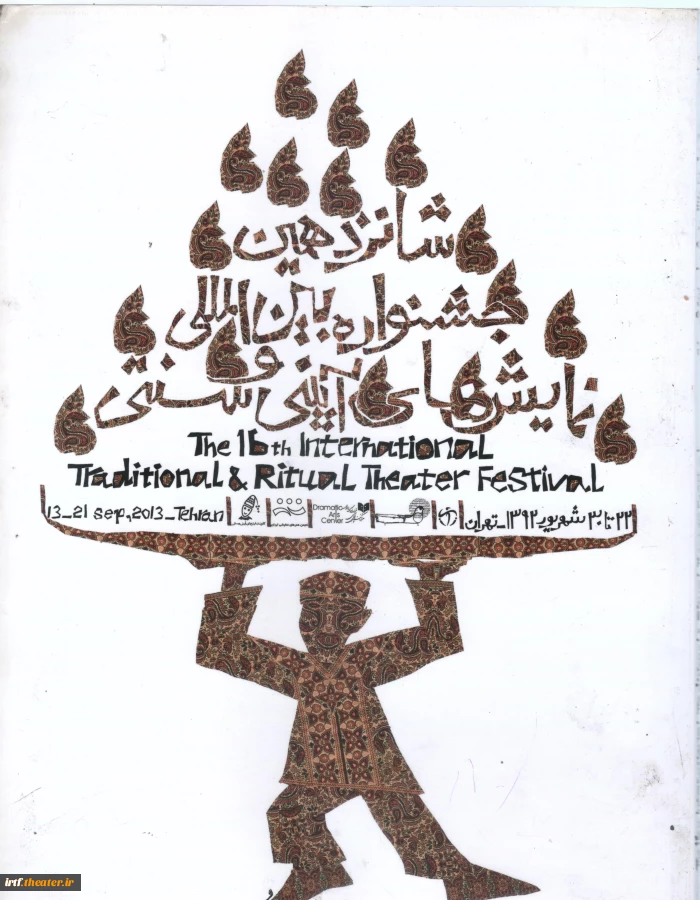 شانزدهمین
جشنواره بین المللی
نمایش‌های آیینی و سنتی
The 16th International
Traditional & Ritual Theater Festival
13_21 sep, 2013_Tehran
Dramatic
Arts
Center
۲۲ تا ۳۰ شهریور ۱۳۹۲_تهران
irtf.theater.ir